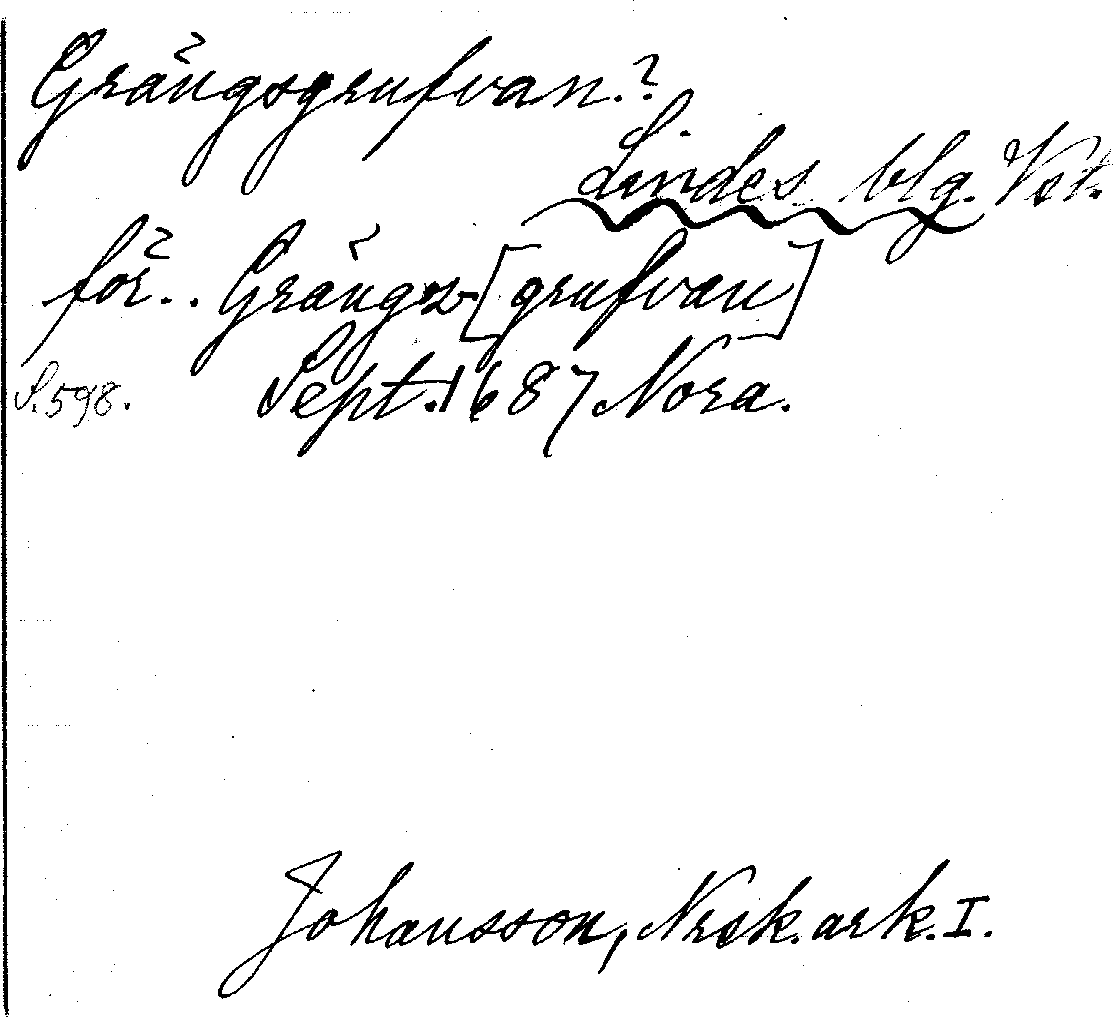 Grängsgrufvan.?
Lindes blg. Vst.
för.. Grängs-[grufvan]
S.598. Sept. 1687 Nora.
Johansson, Nrsk. ark. I.